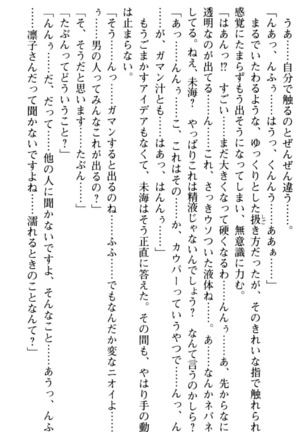 うあ。…自分で触るのとぜんぜん違う…。
「んあっ、んふぅ……はうっ、くんんぅ……ああぁ…」
まるでいたわるような、ゆっくりとした扱き方だったが、そのきれいな指で触れられる
感覚にたまらずもう出そうになってしまい、無意識に力む。
「はぁんっ⁉ すごい……まだ大きくなって硬くなるわ……んんぅ……あ、先からなにか
透明なのが出てる……ん……これ、さっきウソついた液体ね……。あ……なんかネバネバ
してる。ねえ、未海？ やっぱりこれは精液じゃないんでしょう？ なんて言うのかしら？」
「あっ……んんぅ……こ、これはその……か、カウパーっていうやつで……んっ、んんぅ
……が、ガマン汁とも……はぁっ、はんんぅ……」
もうごまかすアイデアもなくて、未海はそう正直に答えた。その間も、やはり手の動き
は止まらない。
「んんっ……ガマンすると出るのね……ふふ……でもなんだか変なニオイよ……んんん
ぅ……男の人ってみんなこれが出るの？」
「そ、そうだと思います……たぶん……」
「たぶんってどういうこと？」
「んんぅ……だ、だって……他の人に聞かないですよ、そんなこと……あうっ、んふぅ
……凛子さんだって聞かないですよね……濡れるときのことなんて？」